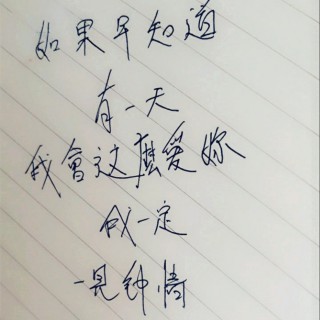 如果早知道
有一天
我會这麼愛妳
我一定
一見钟情